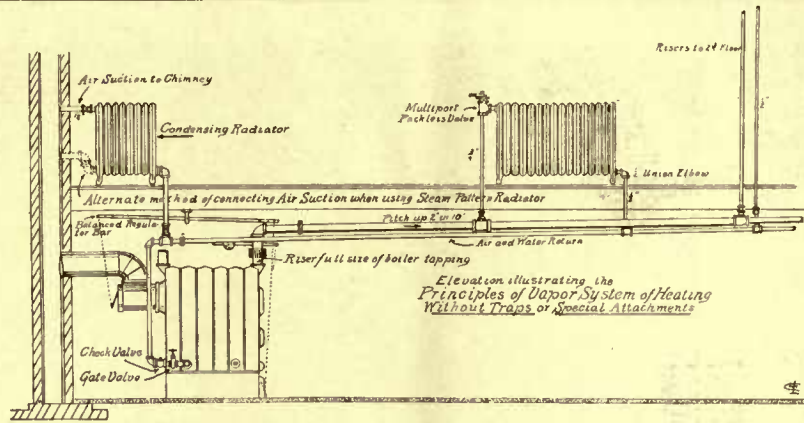 Risers to 2d Floor
Air Suction to Chimney
Condensing Radiator
Multiport
Packless Valve
Union Elbow
Alternate method of connecting Air Suction when using Steam Pattern Radiator
Balanced Regula-
tor Bar
Pitch up 2" in 10'
Air and Water Return
Riser full size of boiler tapping
Elevation illustrating the
Principles of Vapor System of Heating
Without Traps or Special Attachments
Check Valve
Gate Valve